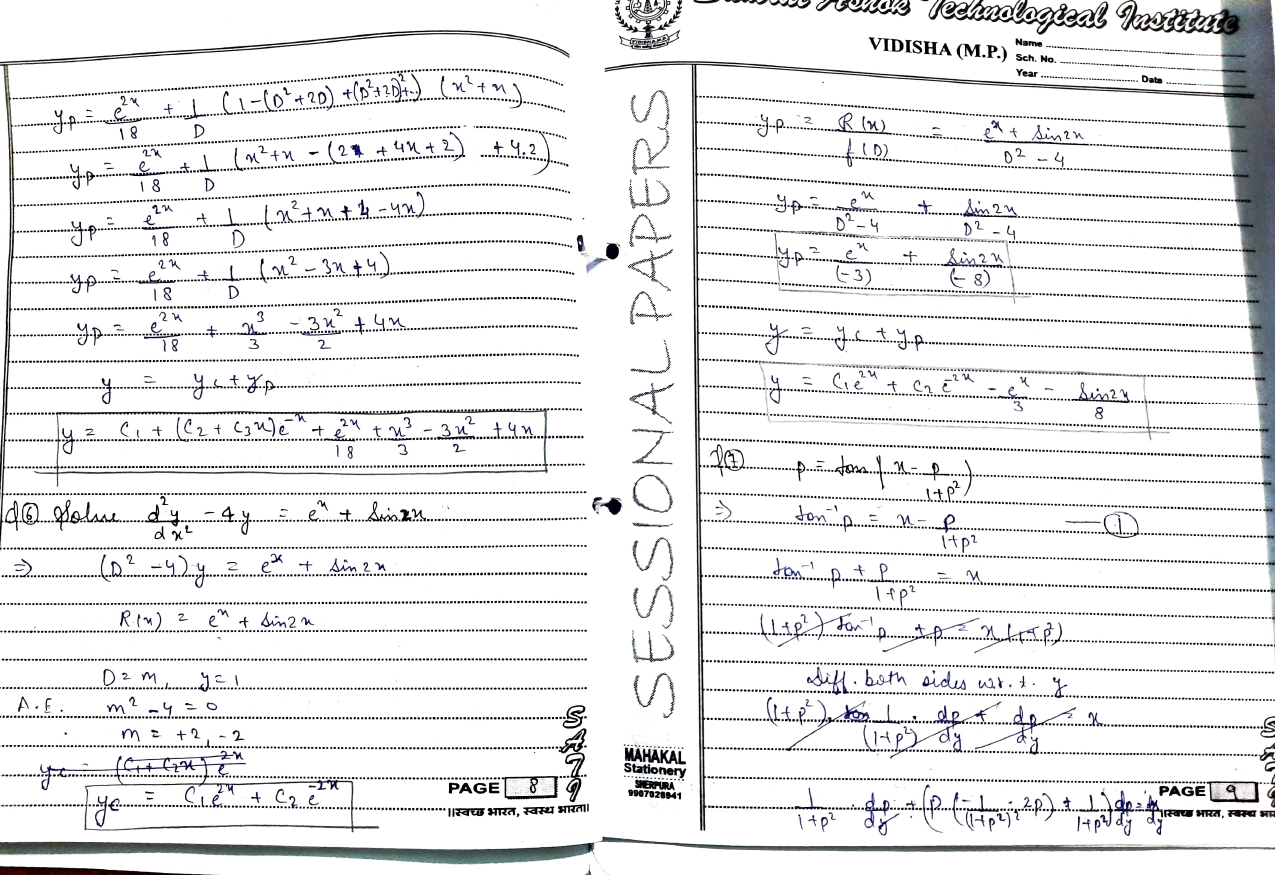 yp = e^2x/18 + 1/D (1-(D²+2D)+(D²+2D)²+..) (x²+x)
yp = e^2x/18 + 1/D (x²+x - (2 + 4x + 2) + 4.2)
yp = e^2x/18 + 1/D (x²+x+4-4x)
yp = e^2x/18 + 1/D (x² - 3x + 4)
yp = e^2x/18 + x³/3 - 3x²/2 + 4x
y = yc + yp
y = C1 + (C2 + C3x)e^-x + e^2x/18 + x³/3 - 3x²/2 + 4x
Q⑥ Solve d²y/dx² - 4y = e^x + Sin2x
⇒ (D² - 4)y = e^x + sin2x
R(x) = e^x + sin2x
D = m, y = 1
A.E. m² - 4 = 0
m = +2, -2
yc = (C1 + C2x) e^2x
yc = C1e^2x + C2e^-2x
PAGE 8
।।स्वच्छ भारत, स्वस्थ भारत।।
SATI
SESSIONAL PAPERS
MAHAKAL
Stationery
SHERPURA
9907028941
Ashok Technological Institute
VIDISHA (M.P.)
Name
Sch. No.
Year Date
yp = R(x)/f(D) = (e^x + Sin2x)/(D² - 4)
yp = e^x/(D²-4) + Sin2x/(D²-4)
yp = e^x/(-3) + Sin2x/(-8)
y = yc + yp
y = C1e^2x + C2e^-2x - e^x/3 - Sin2x/8
Q⑦ p = tan (x - p/(1+p²))
⇒ tan⁻¹p = x - p/(1+p²) —①
tan⁻¹p + p/(1+p²) = x
(1+p²) tan⁻¹p + p = x(1+p²)
Diff. both sides w.r.t. y
(1+p²). 1/(1+p²) . dp/dy + dp/dy = x
1/(1+p²) dp/dy + (p (-1/(1+p²)² . 2p) + 1/(1+p²)) dp/dy = dx/dy
PAGE 9
।।स्वच्छ भारत, स्वस्थ